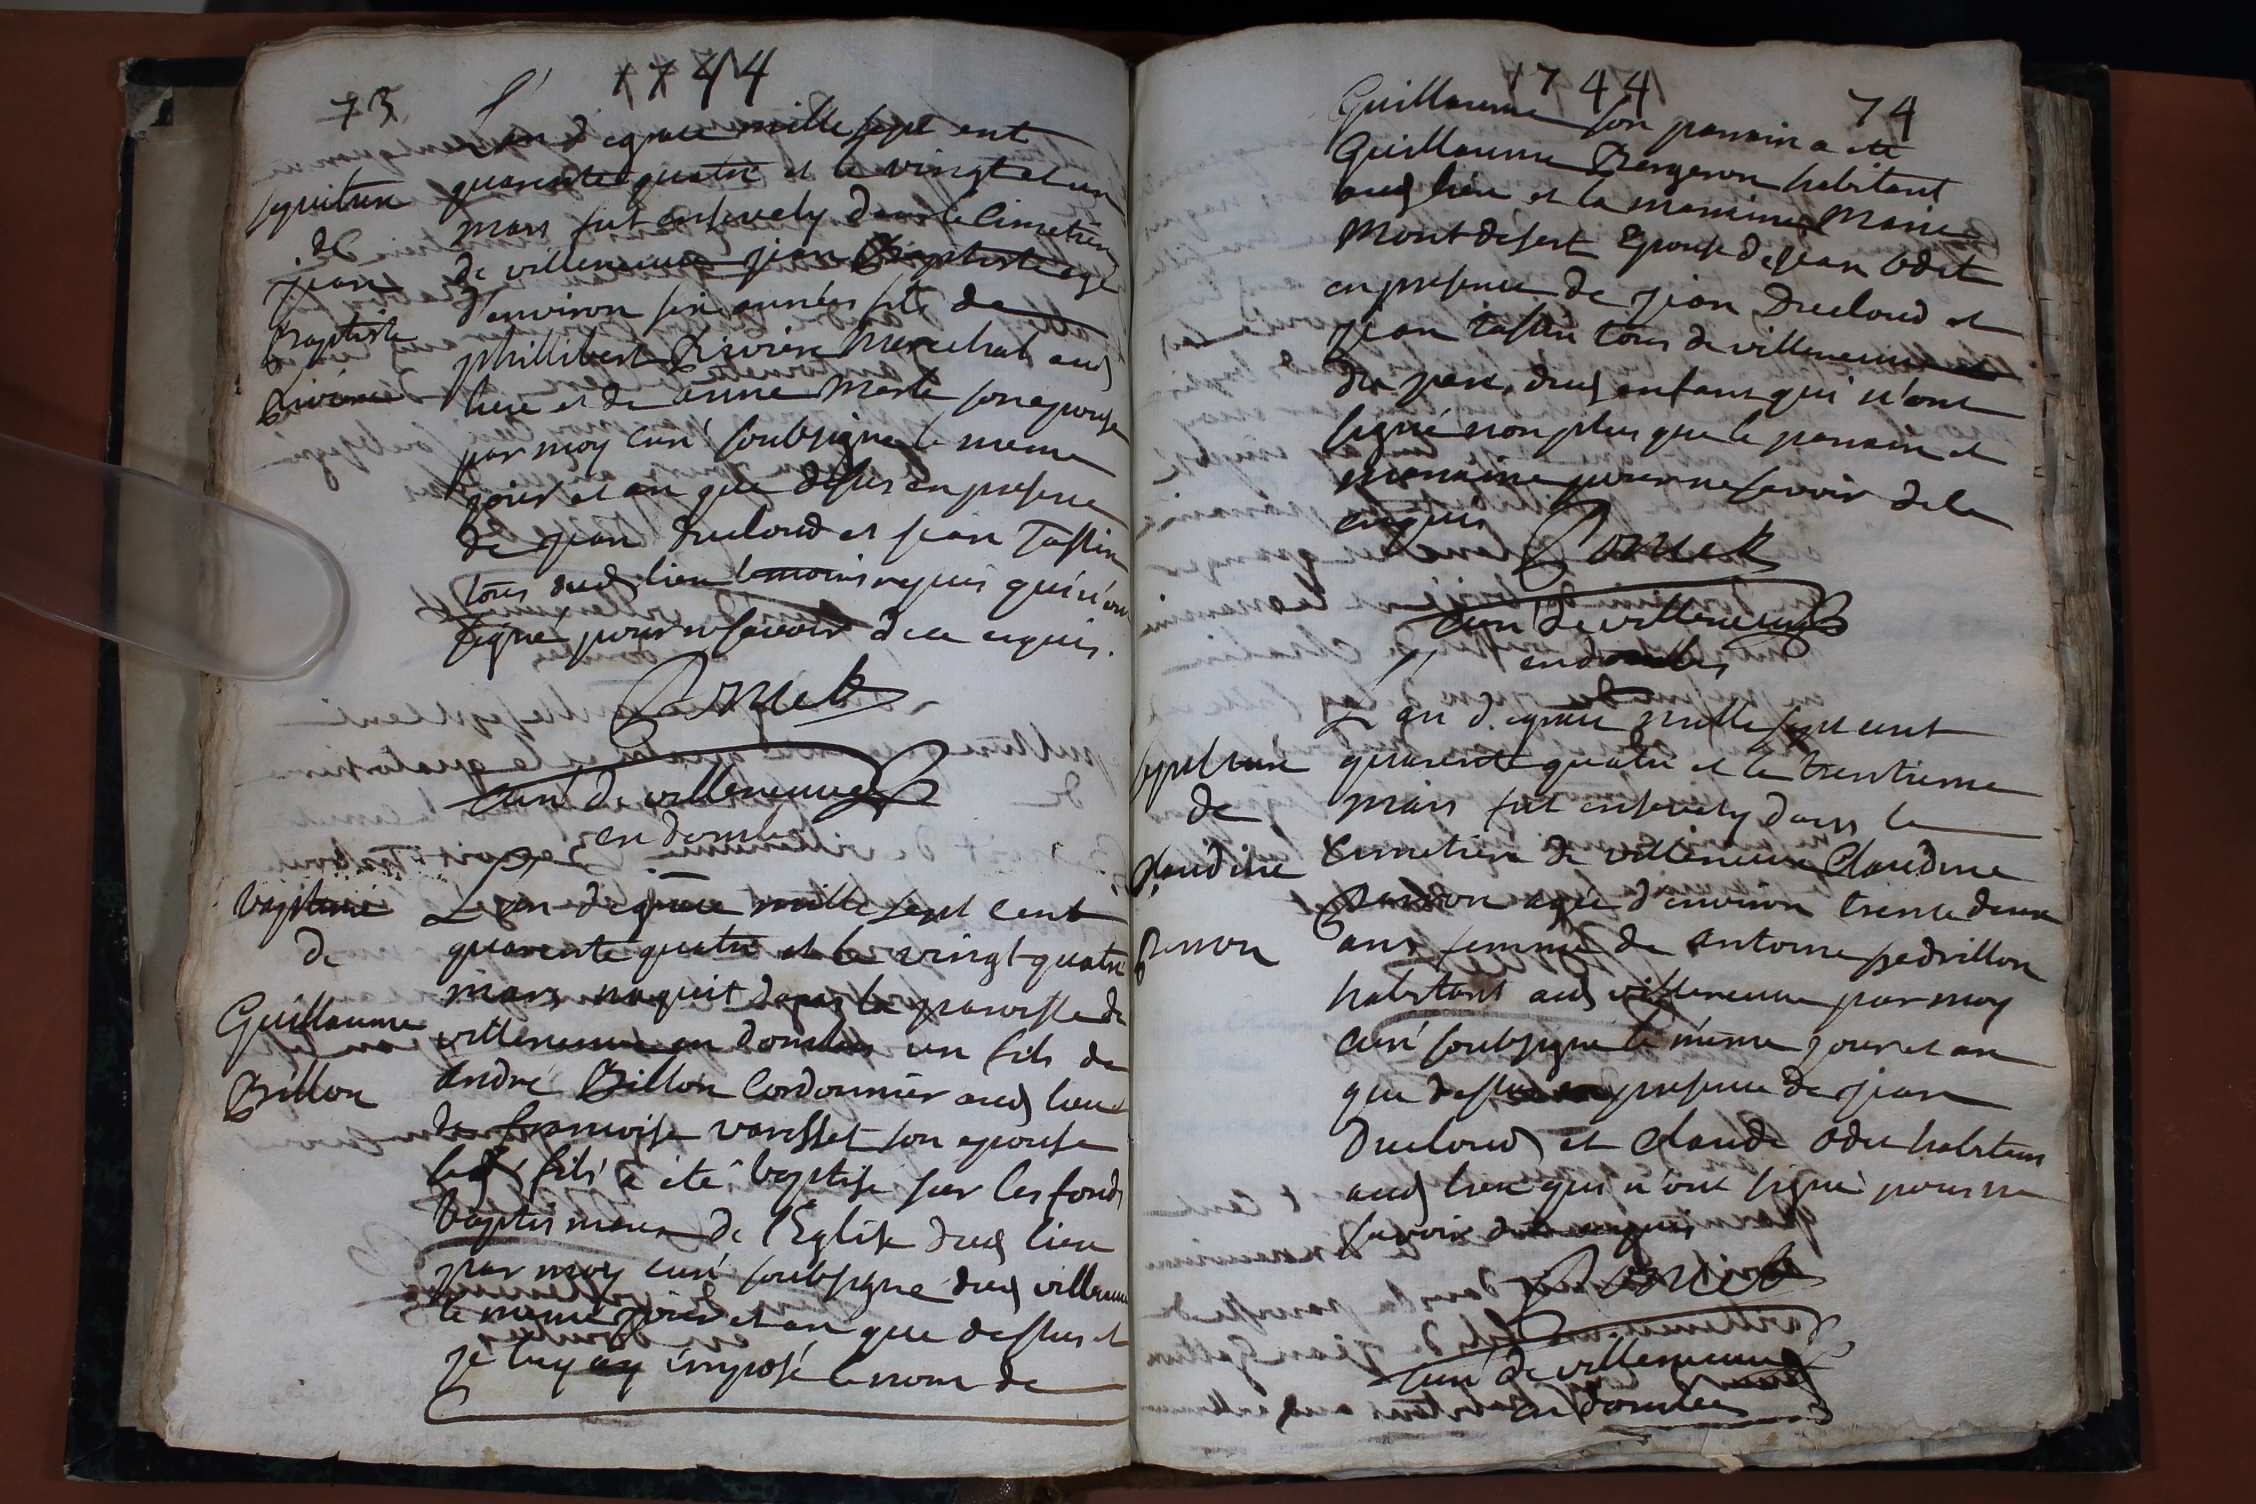 73
1744
L'an de grace mille sept cent
quarente quatre et le vingt et un
mars fut ensevely dans le Cimetiere
de villeneuve jean Baptiste agé
d'environ six années fils de
phillibert Riviere Marechal aud
lieu et de anne Marte son epouse
par moy curé soubsigné le meme
jour et an que dessus en presence
de jean Ducloud et jean Tassin
tous dud lieu temoins requis qui n'ont
signé pour ne savoir de ce enquis.
curé de villeneuve
en dombes
sepulture
de
jean
Baptiste
Riviere
L'an de grace mille sept cent
quarente quatre et le vingt-quatre
mars naquit dans la paroisse de
villeneuve en dombes un fils de
andré Billon Cordonnier aud lieu
de francoise varisset son epouse
led fils a été baptisé sur les fonds
baptismaux de l'Eglise dud lieu
par moy curé soubsigné dud villeneuve
le meme jour et an que dessus et
je luy ay imposé le nom de
baptme
de
Guillaume
Billon
1744
74
Guillaume son parrain a été
Guillaume Bergeron habitant
aud lieu et la marraine Marie
Montdesert Epouse de jean Odet
en presence de jean Ducloud et
jean tassin tous de villeneuve
du pere dud enfant qui n'ont
signé non plus que le parrain et
marraine pour ne savoir de ce
enquis
curé de villeneuve
en dombes
L'an de grace mille sept cent
quarente quatre et le trentieme
mars fut ensevely dans le
Cimetiere de villeneuve Claudine
agée d'environ trente deux
ans femme de antoine pedrillon
habitant aud villeneuve par moy
curé soubsigné le même jour et an
que dessus en presence de jean
Ducloud et claude Odet habitans
aud lieu qui n'ont signé pour ne
savoir de ce enquis
curé de villeneuve
en dombes
sepulture
de
Claudine